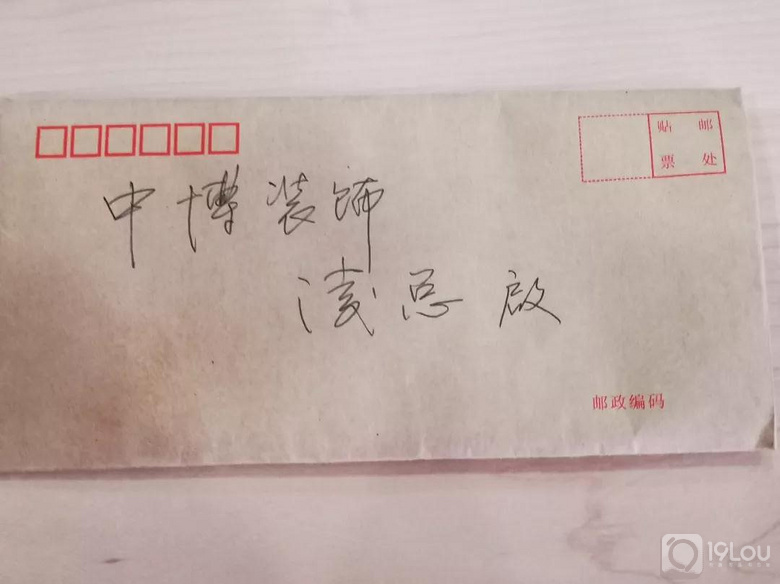 贴 邮
票 处
中博装饰
总 啟
邮政编码
19Lou